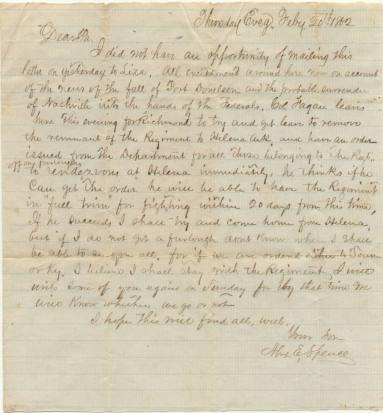 Thursday Eveg. Feby 20th 1862
Dear Pa
I did not have an opportunity of mailing this
letter on yesterday to Liza. All excitement around here now on account
of the news of the fall of Fort Donelson and the probable surrender
of Nashville into the hands of the Federals. Col Fagan leaves
here this evening for Richmond to try and get leave to remove
the remnant of the Regiment to Helena Ark. and have an order
issued from the Department for all those belonging to the Regt.
off on furloughs
to rendezvous at Helena immediately, he thinks if he
can get the order he will be able to have the Regiment
in full trim for fighting within 20 days from this time,
If he succeeds I shall try and come home from Helena,
but if I do not get a furlough dont know when I shall
be able to see you all. for if we are ordered to Tenn
or Ky. I believe I shall stay with the Regiment. I will
write some of you again on Tuesday for by that time we
will know whether we go or not
I hope this will find all, well.
Your Son
Alex. E. Spence